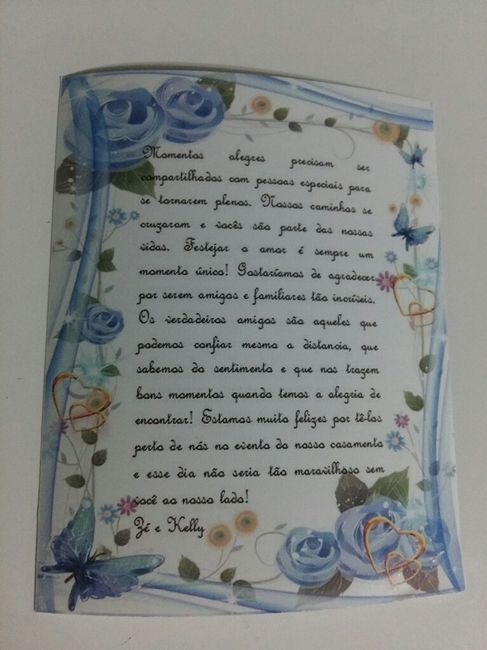 Momentos alegres precisam ser
compartilhados com pessoas especiais para
se tornarem plenos. Nossos caminhos se
cruzaram e vocês são parte das nossas
vidas. Festejar o amor é sempre um
momento único! Gostaríamos de agradecer
por serem amigos e familiares tão incríveis.
Os verdadeiros amigos são aqueles que
podemos confiar mesmo a distancia, que
sabemos do sentimento e que nos trazem
bons momentos quando temos a alegria de
encontrar! Estamos muito felizes por tê-los
perto de nós no evento do nosso casamento
e esse dia não seria tão maravilhoso sem
você ao nosso lado!
Zé e Kelly